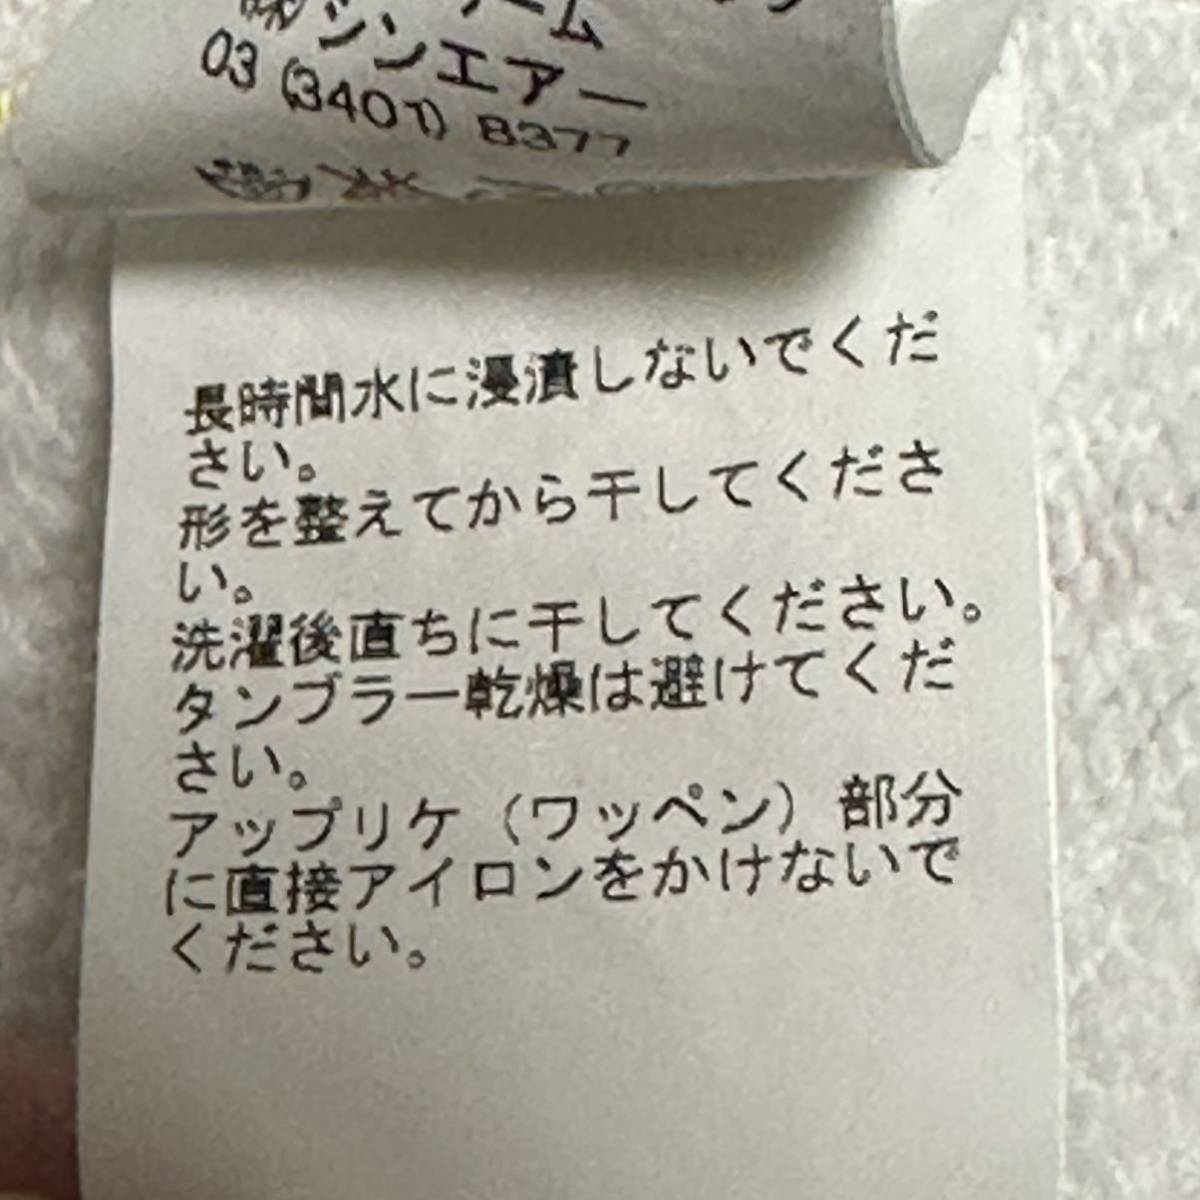 ㈱シンエアー
03 (3401) 8377
長時間水に浸漬しないでくだ
さい。
形を整えてから干してくださ
い。
洗濯後直ちに干してください。
タンブラー乾燥は避けてくだ
さい。
アップリケ（ワッペン）部分
に直接アイロンをかけないで
ください。